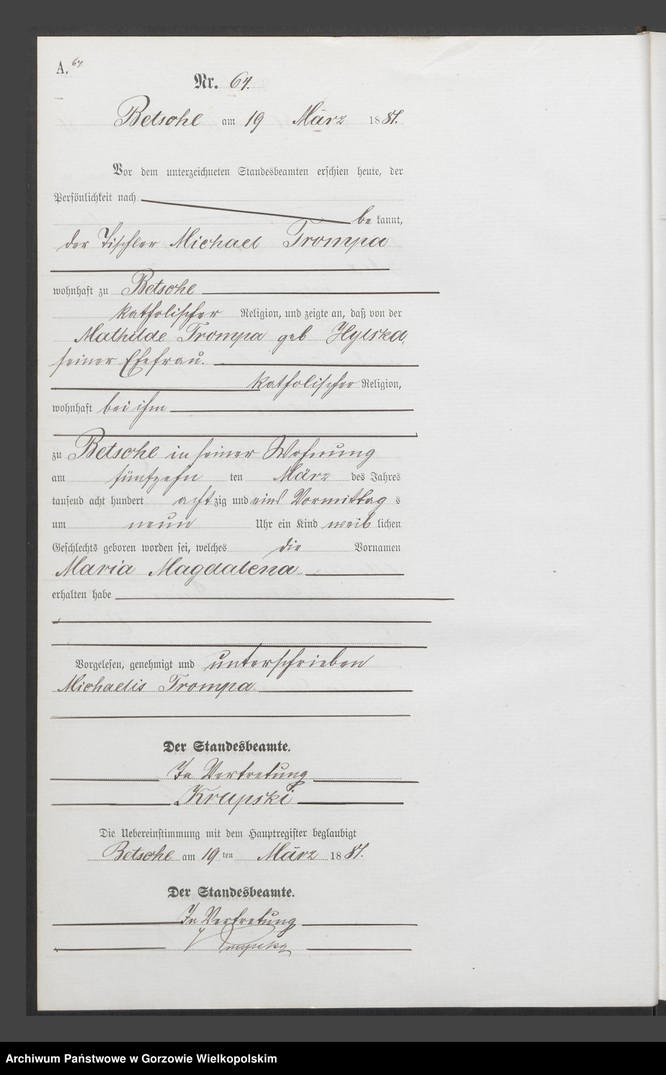 A. 64
Nr. 64.
Betsche am 19 März 1881.
Vor dem unterzeichneten Standesbeamten erschien heute, der
Persönlichkeit nach
bekannt,
der Tischler Michael Trompa
wohnhaft zu Betsche
katholischer Religion, und zeigte an, daß von der
Mathilde Trompa geb
seiner Ehefrau.
katholischer Religion,
wohnhaft bei ihm
zu Betsche in seiner Wohnung
am fünfzehn ten März des Jahres
tausend acht hundert achtzig und eins Vormittag s
um neun Uhr ein Kind weiblichen
Geschlechts geboren worden sei, welches die Vornamen
Maria Magdalena
erhalten habe
Vorgelesen, genehmigt und unterschrieben
Michaelis Trompa
Der Standesbeamte.
In Vertretung
Krupski
Die Uebereinstimmung mit dem Hauptregister beglaubigt
Betsche am 19 ten März 1881.
Der Standesbeamte.
In Vertretung
Archiwum Państwowe w Gorzowie Wielkopolskim